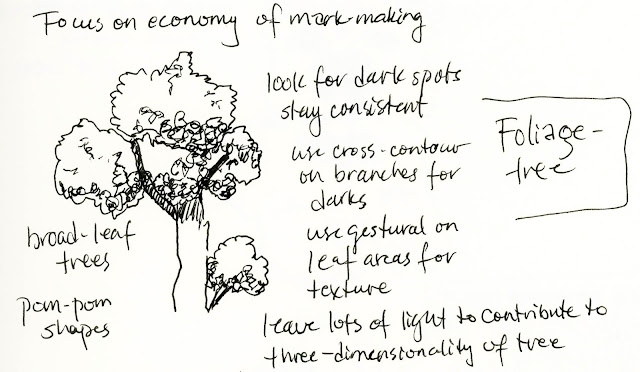 Focus on economy of mark-making
look for dark spots
stay consistent
Foliage-
tree
use cross-contour
on branches for
darks
use gestural on
leaf areas for
texture
broad-leaf
trees
pom-pom
shapes
leave lots of light to contribute to
three-dimensionality of tree